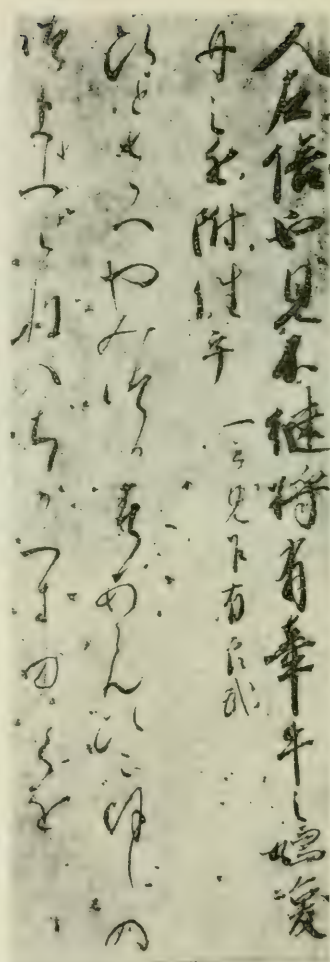 人左倍也見不継将有牽牛之嬬喚
舟之近附徃乎 一云見乍有良武
ひとさへやみつ らんひこほしの
つまよふ ちかつきゆくを